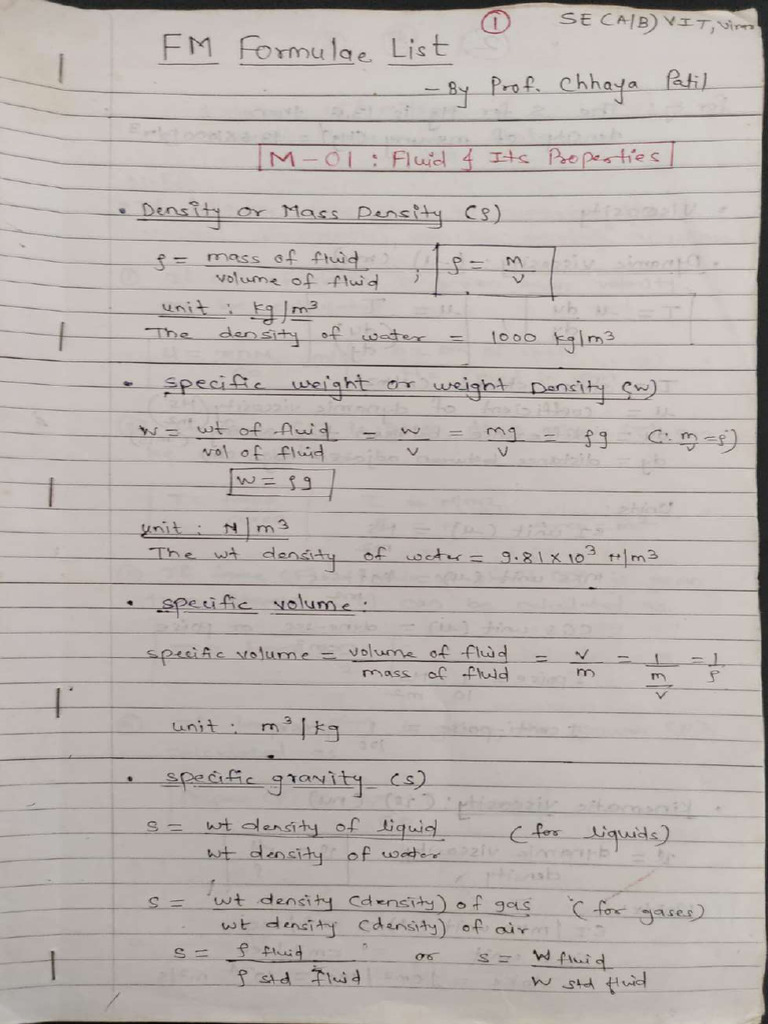 ① SE (A/B) VIT, Virar
FM Formulae List
- By Prof. Chhaya Patil
M-01 : Fluid & Its Properties
• Density or Mass Density (ρ)
ρ = mass of fluid / volume of fluid ; ρ = m/v
unit : kg/m³
The density of water = 1000 kg/m³
• specific weight or weight Density (w)
w = wt of fluid / vol of fluid = w/v = mg/v = ρg (∵ m/v = ρ)
w = ρg
unit : N/m³
The wt density of water = 9.81 x 10³ N/m³
• specific volume :
specific volume = volume of fluid / mass of fluid = v/m = 1/(m/v) = 1/ρ
unit : m³/kg
• specific gravity (s)
s = wt density of liquid / wt density of water (for liquids)
s = wt density (density) of gas / wt density (density) of air (for gases)
s = ρ fluid / ρ std fluid or s = w fluid / w std fluid